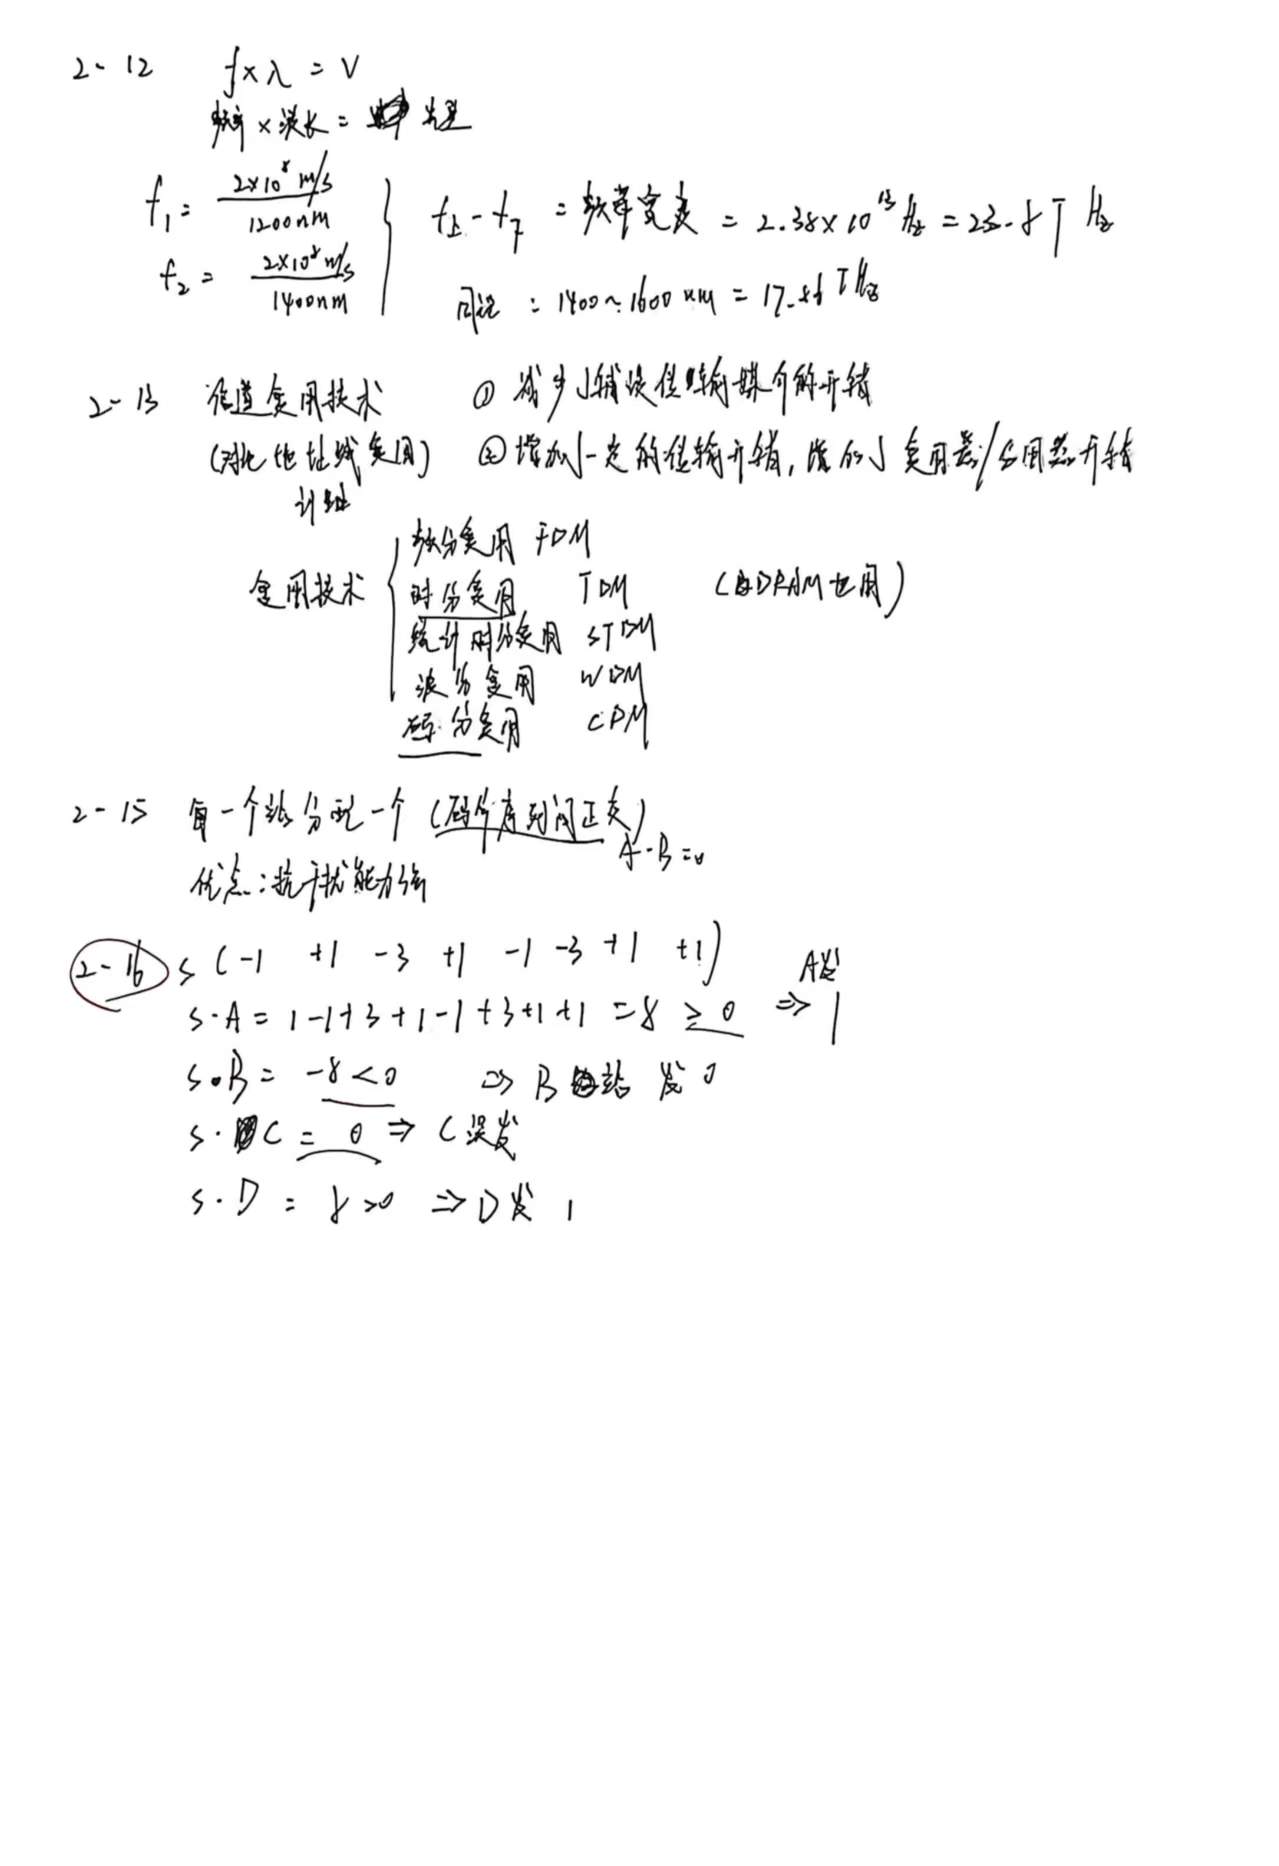 2-12 f×λ = V
频率×波长 = 光速
f₁ = 2×10⁸m/s / 1200nm
f₂ = 2×10⁸m/s / 1400nm
f上 - f下 = 频带宽度 = 2.38×10¹³Hz = 23.8THz
同理: 1400~1600nm = 17.86THz
2-13 信道复用技术 ① 减少了铺设传输媒介的开销
(对比地址线复用) ②增加了一定的传输开销,增加了复用器/分用器开销
计组
复用技术
频分复用 FDM
时分复用 TDM (DRAM也用)
统计时分复用 STDM
波分复用 WDM
码分复用 CDM
2-15 每一个站分配一个(码片序列间正交)
A·B=0
优点:抗干扰能力强
2-16 S (-1 +1 -3 +1 -1 -3 +1 +1)
S·A = 1-1+3+1-1+3+1+1 = 8 ≥ 0 ⇒ A发 1
S·B = -8<0 ⇒ B站发0
S·C = 0 ⇒ C没发
S·D = 8>0 ⇒ D发 1